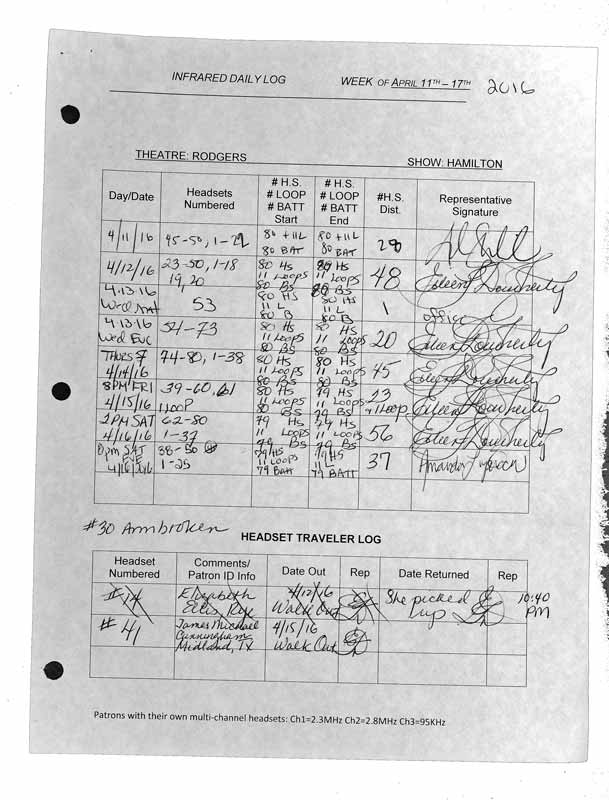 INFRARED DAILY LOG WEEK OF APRIL 11TH – 17TH 2016
THEATRE: RODGERS SHOW: HAMILTON
Day/Date Headsets Numbered # H.S. # LOOP # BATT Start # H.S. # LOOP # BATT End #H.S. Dist. Representative Signature
4/11/16 45-50, 1-22 80 + 11L 80 BAT 80 + 11L 80 BAT 28
4/12/16 23-50, 1-18 19, 20 80 HS 11 LOOPS 80 BS HS 11 LOOPS 80 BS 48 Eileen Dougherty
4.13.16 Wed Mat 53 80 HS 11 L 80 B 80 HS 11 L 80 B 1 office
4.13.16 Wed Eve 54-73 80 HS 11 LOOPS 80 BS 80 HS 11 LOOPS 80 BS 20 Eileen Dougherty
THURS 7 4/14/16 74-80, 1-38 80 HS 11 LOOPS 80 BS 80 HS 11 LOOPS 80 BS 45 Eileen Dougherty
8PM FRI 4/15/16 39-60, 61 1 LOOP 80 HS 11 LOOPS 80 BS 79 HS 11 LOOPS 79 BS 23 + 1 Loop Eileen Dougherty
2PM SAT 4/16/16 62-80 1-37 79 HS 11 LOOPS 79 BS 79 HS 11 LOOPS 79 BS 56 Eileen Dougherty
8pm SAT EVE 4/16/2016 38-50 1-25 79 HS 11 LOOPS 79 BATT 79 HS 11 L 79 BATT 37 Amanda
#30 Arm broken
HEADSET TRAVELER LOG
Headset Numbered Comments/ Patron ID Info Date Out Rep Date Returned Rep
#14 Elizabeth Ellis Rye 4/12/16 Walk Out ED She picked up ED 10:40 PM
#41 James Michael Cunningham Midland, TX 4/15/16 Walk Out ED
Patrons with their own multi-channel headsets: Ch1=2.3MHz Ch2=2.8MHz Ch3=95KHz